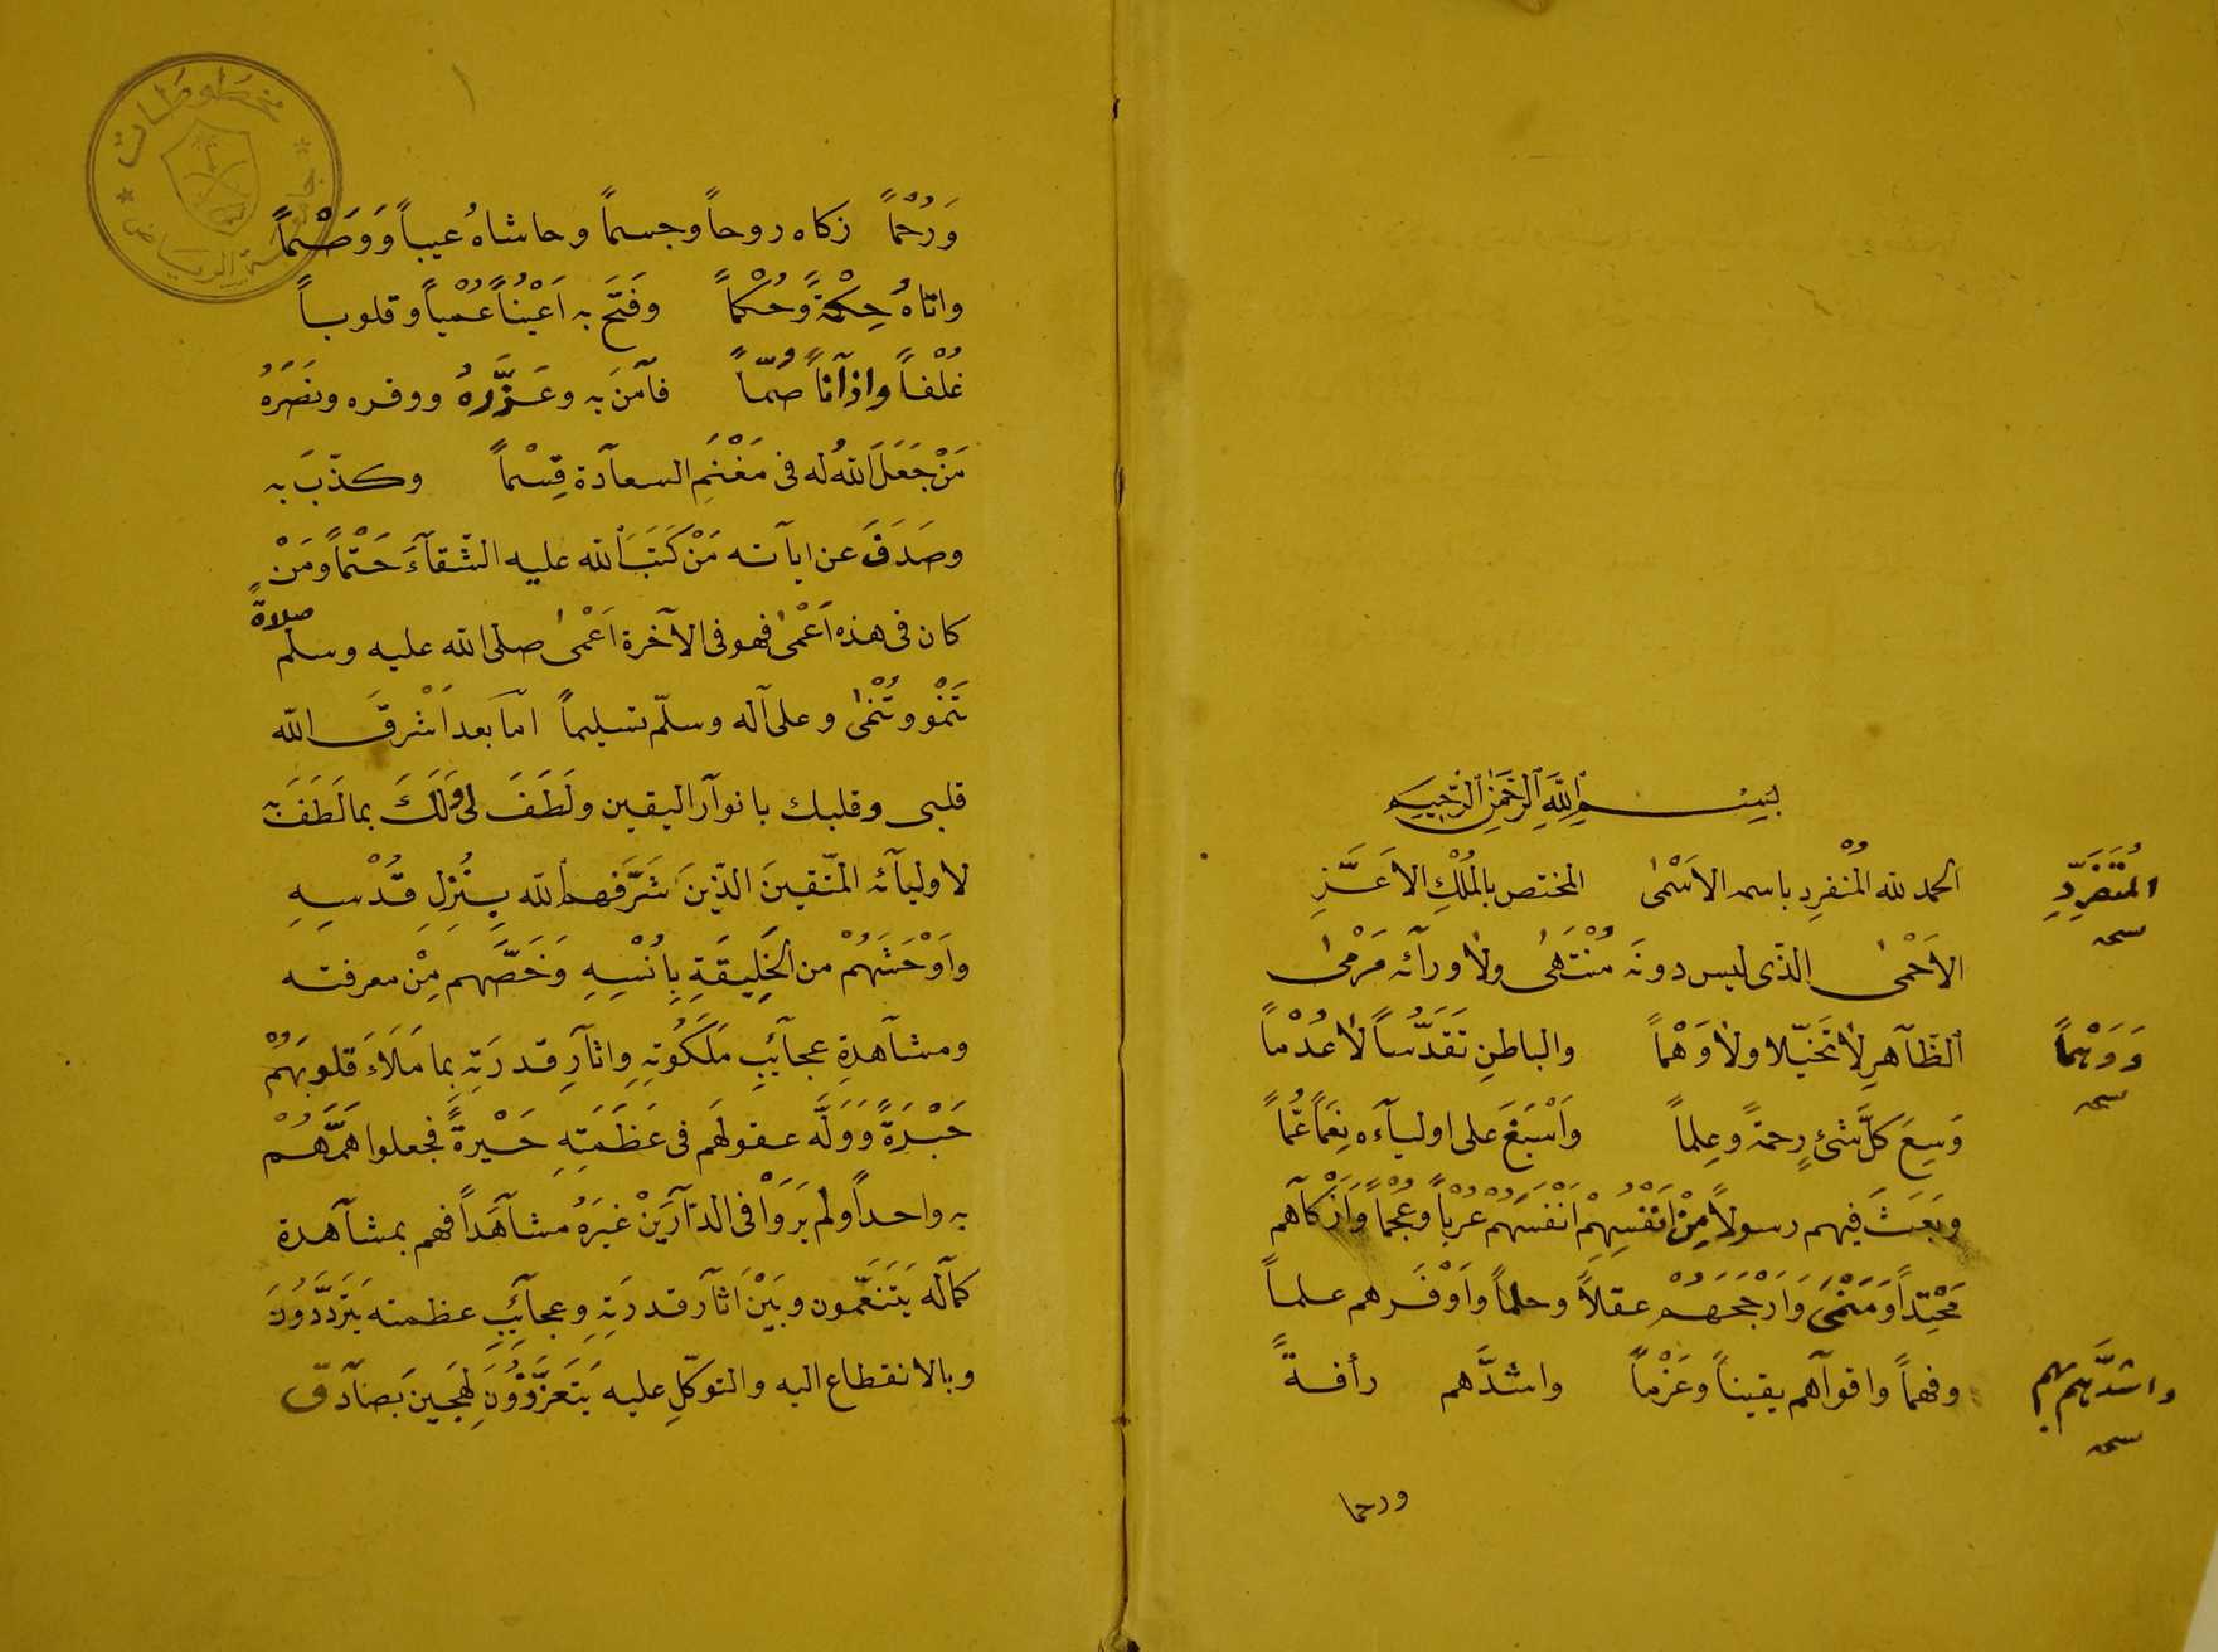 بِسْمِ اللَّهِ الرَّحْمٰنِ الرَّحِيمِ
الحمد لله المُنْفرِد باسمه الاَسْمٰى المختص بالمُلْكِ الاَعَزِّ
المُتَفَرِّدِ
الاَحْمٰى الذى ليس دونَه مُنْتَهٰى ولا ورآئه مَرْمٰى
الظّآهرِ لا تَخَيّلا ولا وَهْماً والباطنِ تَقَدُّساً لا عُدْماً
وَوَهْماً
وَسِعَ كلَّ شئٍ رحمةً وعِلماً وَاَسْبَغَ على اوليآءه نِعَماً عُمّاً
وبَعَثَ فيهم رسولاً مِنْ اَنْفُسِهِمْ اَنْفَسَهُمْ عُرْباً وعُجْماً وَاَزْكآهم
مَحْتِداً وَمَنْمٰى وَاَرْجَحَهُمْ عقلاً وحلماً وَاَوْفَرهم علماً
وفهماً واقوآهم يقيناً وعَزْماً واشدَّهم رأفةً
واشدَّهم بهم
ورحما
وَرُحْماً زكاه روحاً وجسماً وحاشاهُ عيباً وَوَصْماً
واتاهُ حِكْمَةً وَحُكْماً وفَتَحَ به اَعْيُناً عُمْياً وقلوباً
غُلْفاً واذآناً صُمّاً فآمَنَ به وعَزَّرهُ ووقره ونَصَرَهُ
مَنْ جَعَلَ اللهُ له فى مَغْنَمِ السعآدة قِسْماً وكذّبَ به
وصَدَفَ عن اياته مَنْ كَتَبَ الله عليه الشّقآءَ حَتْماً ومَنْ
كان فى هذه اَعْمٰى فهو فى الآخرة اَعْمٰى صلى الله عليه وسلم صلاةً
تَنْمُو وتُنْمٰى وعلى آله وسلّم تسليماً امّا بعد اَشْرقَ الله
قلبى وقلبك بانوآر اليقين ولَطَفَ لى وَلَكَ بما لَطَفَ به
لاوليآئه المتّقينَ الذّينَ شَرَّفهم الله بِنُزِلِ قُدْسِهِ
واَوْحَشَهُمْ من الخَلِيقَةِ بِاُنْسِهِ وَخَصَّهم مِنْ معرفته
ومشآهدةِ عجآئِبِ مَلَكُوتِهِ واثآرِ قدرَتِهِ بما مَلَاءَ قلوبَهُمْ
حَبْرَةً وَوَلَّه عقولهَم فى عَظَمَتِهِ حَيْرةً فجعلوا هَمَّهُمْ
به واحداً ولم يَرَوْا فى الدّآرَيْنِ غيرَهُ مشآهَداً فهم بمشآهدة
كمآله يَتَنَعَّمون وبَيْنَ اثآر قدرَتِهِ وعجآئِبِ عظمته يَتَرَدَّدُونَ
وبالانقطاع اليه والتوكّلِ عليه يَتَعَزَّزُونَ لَهِجينَ بصآدق